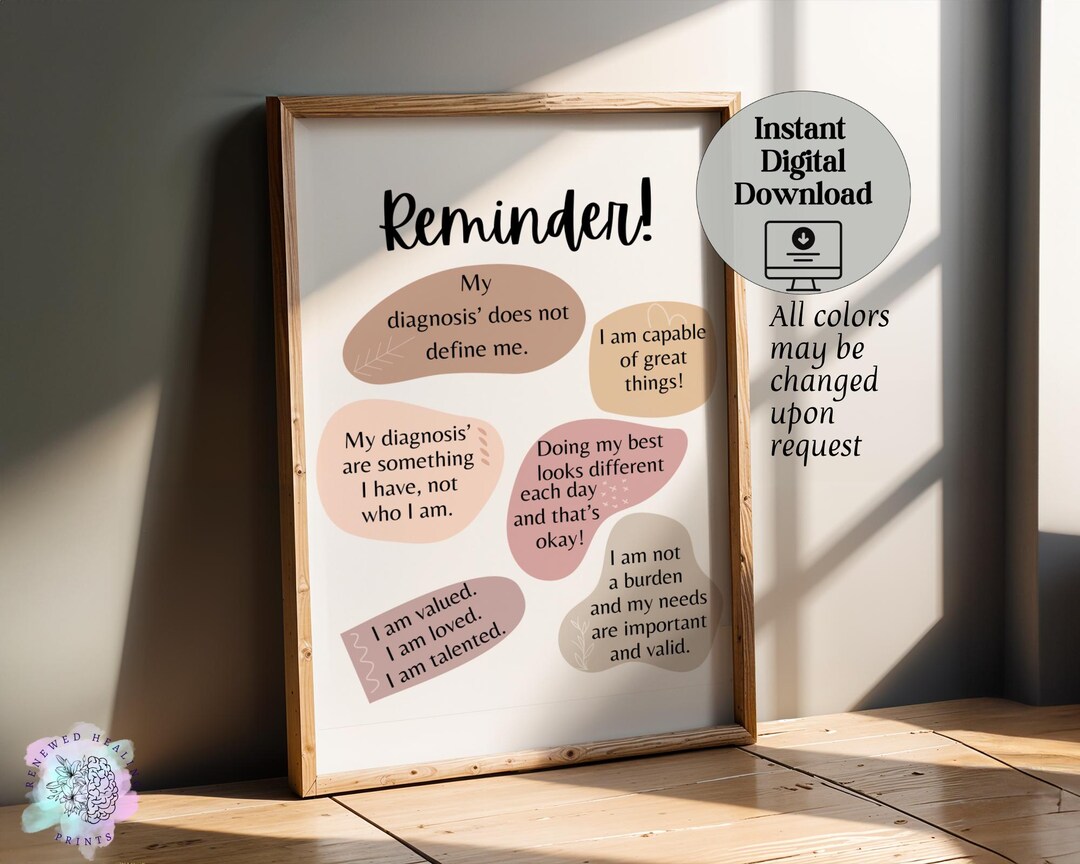 Reminder!
My
diagnosis' does not
define me.
I am capable
of great
things!
My diagnosis'
are something
I have, not
who I am.
Doing my best
looks different
each day
and that's
okay!
I am not
a burden
and my needs
are important
and valid.
I am valued.
I am loved.
I am talented.
Instant
Digital
Download
All colors
may be
changed
upon
request
RENEWED
PRINTS